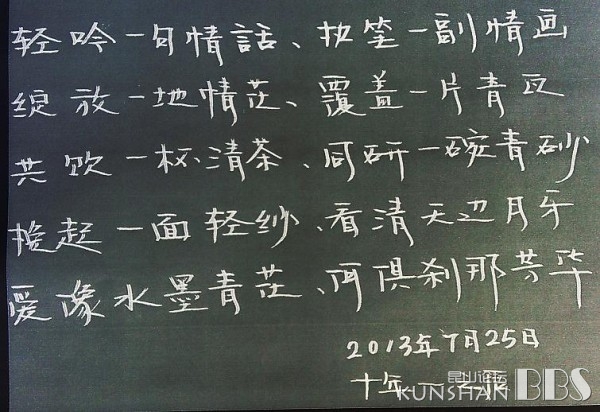 轻吟一句情話、执笔一副情画
绽放一地情花、覆盖一片青瓦
共饮一杯清茶、同研一碗青砂
挽起一面轻纱、看清天边月牙
爱像水墨青花、何俱刹那芳华
2013年7月25日
十年一
昆山论坛
KUNSHAN BBS